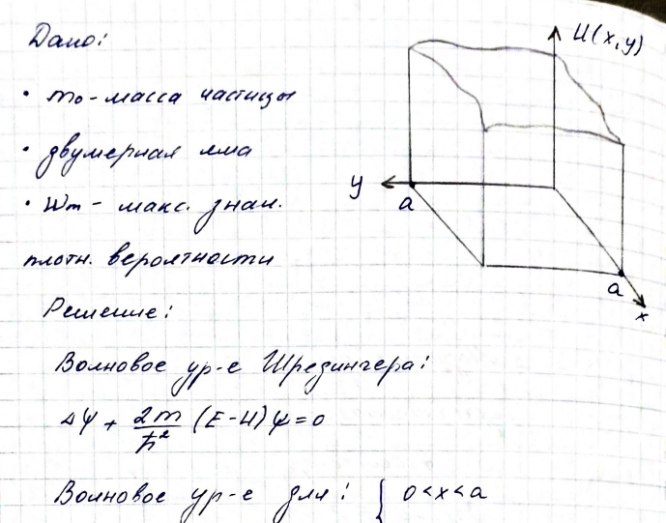 Дано:
U(x,y)
• m₀ - масса частицы
• двумерная яма
y
a
• Wm - макс. знач.
плотн. вероятности
a
x
Решение:
Волновое ур-е Шредингера:
Δψ + 2m/ħ² (E-U)ψ = 0
Волновое ур-е для: { 0<x<a